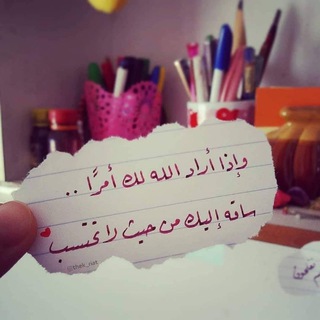 وإذا أراد الله لك أمرًا ..
ساقه إليك من حيث لا تحتسب